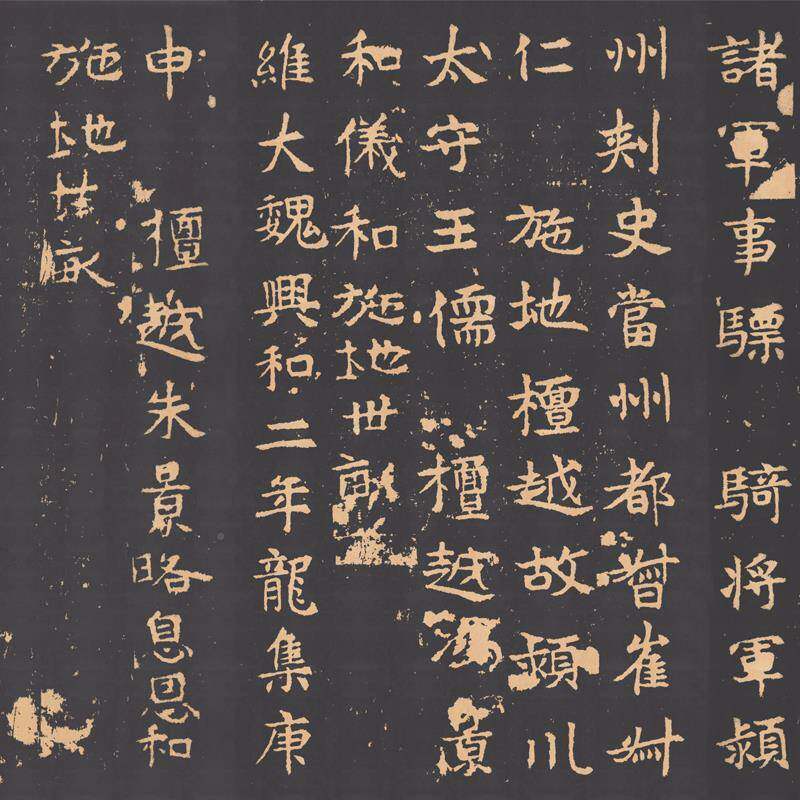 諸軍事驃騎將軍潁
州刾史當州都督崔叔
仁施地檀越故潁川
太守王儒檀越
和儀和施地世
維大魏興和二年龍集庚
申檀越朱景略息思和
施地